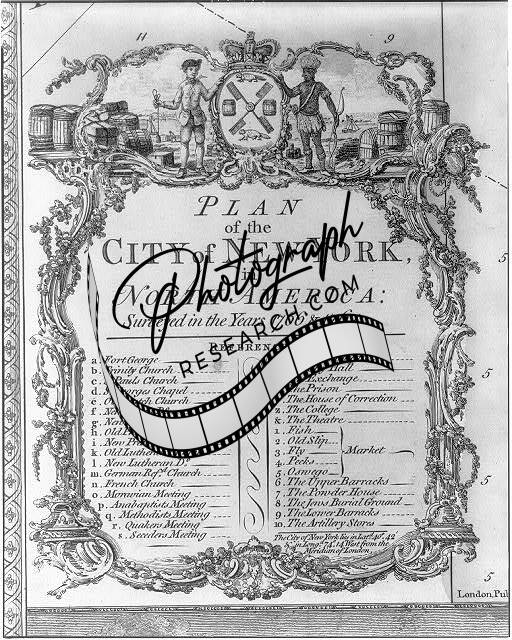 11
9
PLAN
of the
CITY of NEW YORK,
in
NORTH AMERICA:
Surveyed in the Years 1766 &
Photograph
RESEARCH.COM
REFERENC
a. Fort George
b. Trinity Church
c. Pauls Church
d. Georges Chapel
e. Dutch Church
f.
g.
h. Old
i. New
k. Old
l. New Lutheran D.º
m. German Ref.d Church
n. French Church
o. Moravian Meeting
p. Anabaptists Meeting
q. Methodists Meeting
r. Quakers Meeting
s. Seceders Meeting
Hall
Exchange
The Prison
The House of Correction
z. The College
&. The Theatre
1. Fish
2. Old Slip
3. Fly
4. Peeks
5. Oswego
Market
6. The Upper Barracks
7. The Powder House
8. The Jews Burial Ground
9. The Lower Barracks
10. The Artillery Stores
The City of New York lies in Lat.d 40°, 42
in Long.de 74°, 14 West from the
Meridian of London
5
5
5
5
London, Pub